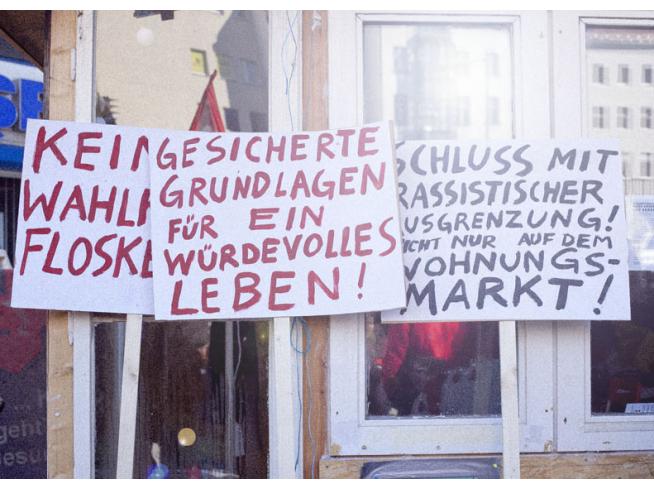 KEIN
WAHL
FLOSKE
GESICHERTE
GRUNDLAGEN
FÜR EIN
WÜRDEVOLLES
LEBEN!
SCHLUSS MIT
RASSISTISCHER
USGRENZUNG!
ICHT NUR AUF DEM
WOHNUNGS-
MARKT!
geht